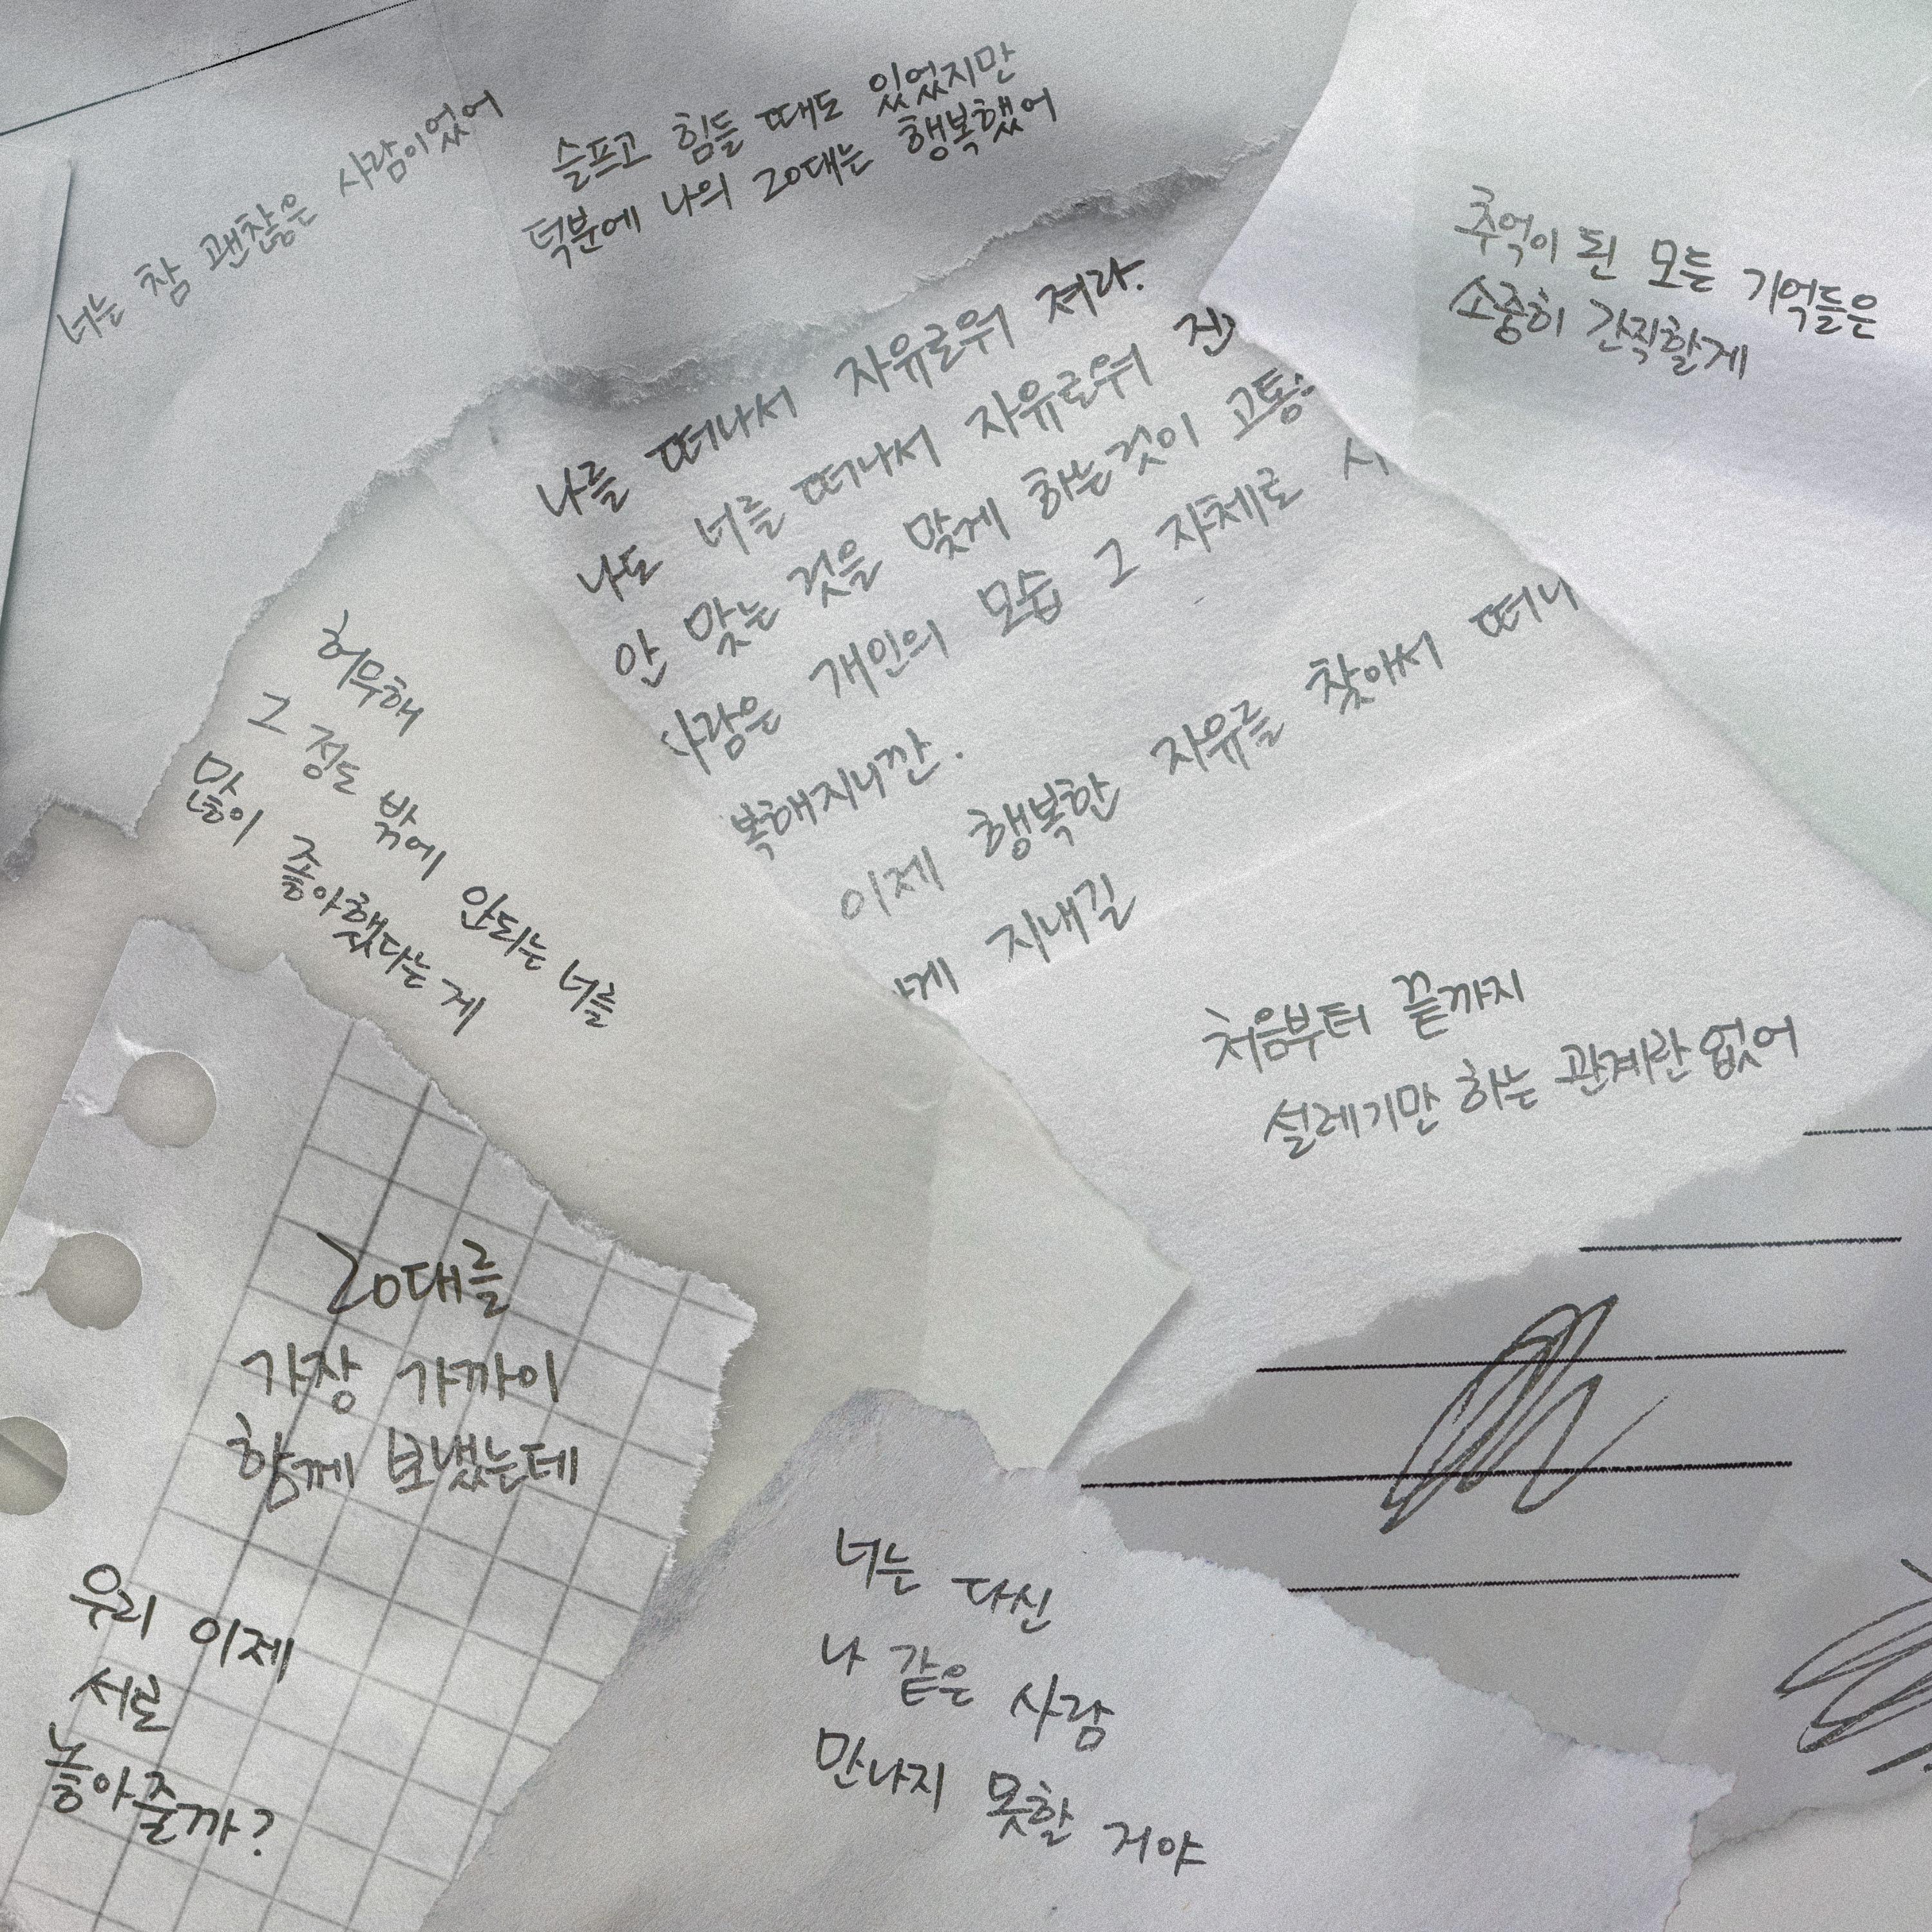 너는 참 괜찮은 사람이었어
슬프고 힘들 때도 있었지만
덕분에 나의 20대는 행복했어
추억이 된 모든 기억들은
소중히 간직할게
나를 떠나서 자유로워 져라.
나도 너를 떠나서 자유로워 진
안 맞는 것을 맞게 하는것이 고통
사람은 개인의 모습 그 자체로 서
복해지니깐.
이제 행복한 자유를 찾아서 떠나
게 지내길
허무해
그 정도 밖에 안되는 너를
많이 좋아했다는 게
처음부터 끝까지
설레기만 하는 관계란 없어
20대를
가장 가까이
함께 보냈는데
우리 이제
서로
놓아줄까?
너는 다신
나 같은 사람
만나지 못할 거야